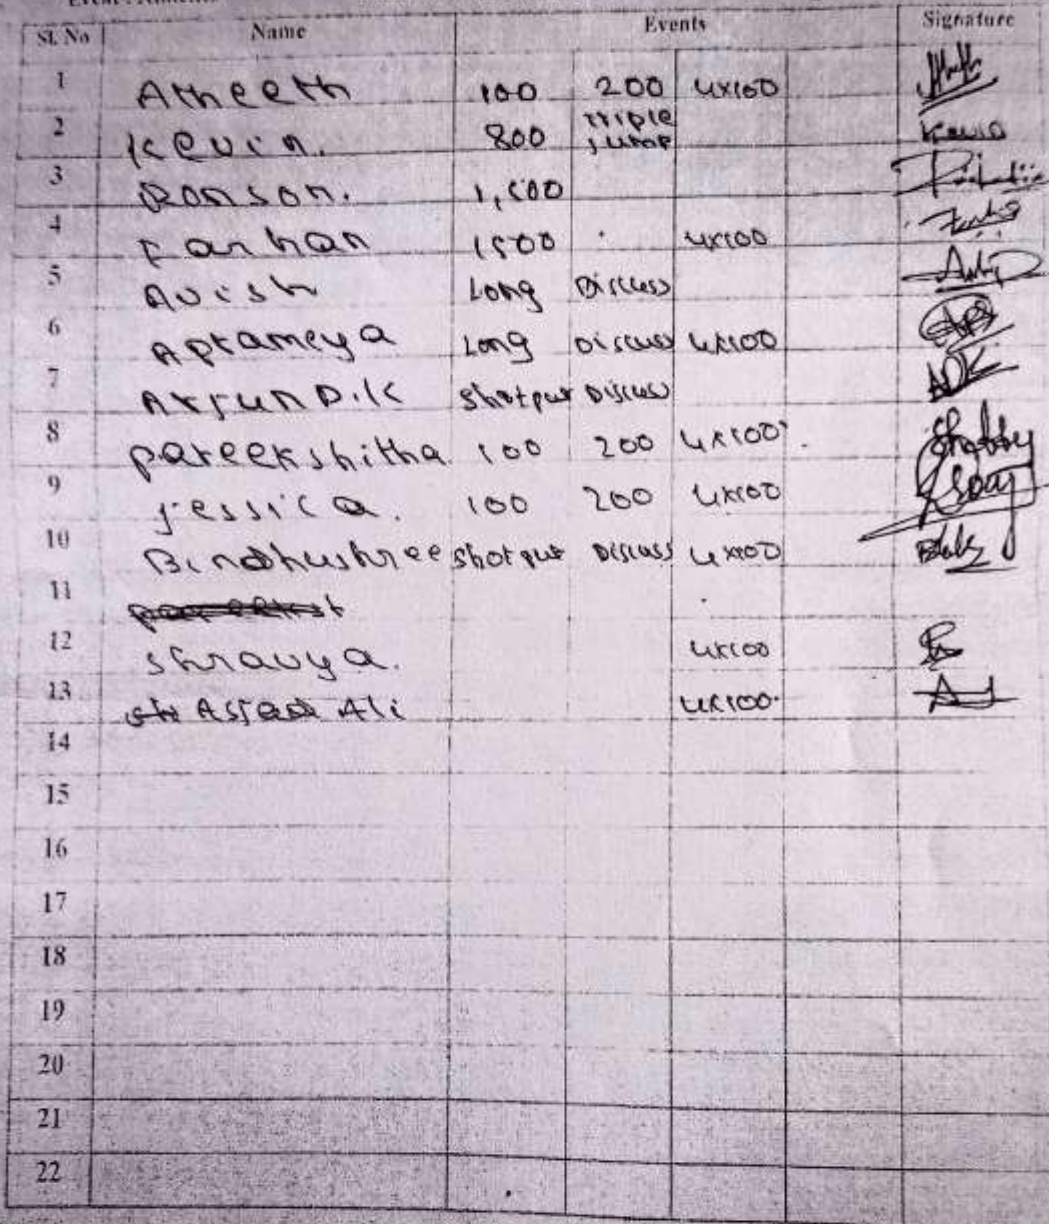 Sl. No Name Events Signature
1 Atheeth 100 200 4x100
2 Kevin. 800 triple jump Kevin
3 Ronson. 1,500
4 Farhan 1500 4x100
5 Avish Long Discuss
6 Aprameya Long Discuss 4x100
7 Arjun D.K Shotput Discuss ADK
8 Pareekshitha 100 200 4x100
9 Jessica. 100 200 4x100
10 Bindhushree Shotput Discuss 4x100
11
12 Shravya. 4x100
13 Ali 4x100
14
15
16
17
18
19
20
21
22